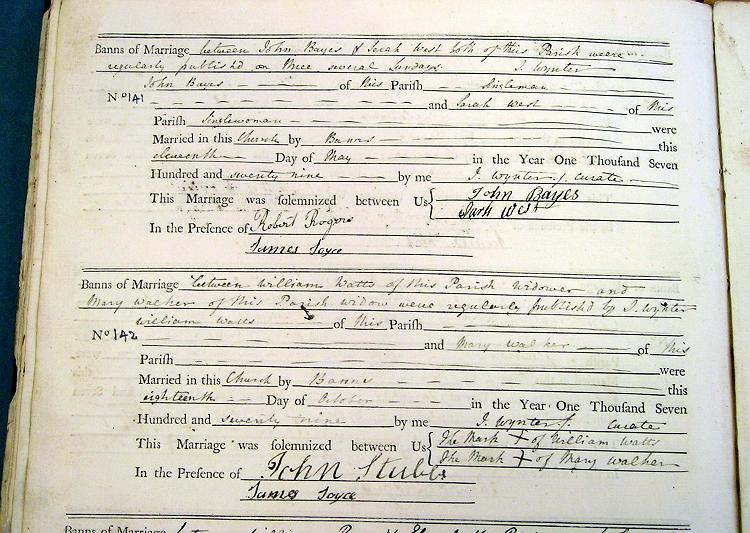 Banns of Marriage between John Bayes & Sarah West both of this Parish were
regularly published on three several Sundays J. Wynter
John Bayes of this Parish Singleman
No 141 and Sarah West of this
Parish Singlewoman were
Married in this Church by Banns this
eleventh Day of May in the Year One Thousand Seven
Hundred and seventy nine by me J. Wynter, Curate
This Marriage was solemnized between Us John Bayes
Sarah West
In the Presence of Robert Rogers
James Joyce
Banns of Marriage between William Watts of this Parish widower and
Mary Walker of this Parish widow were regularly publish'd by J. Wynter
William Watts of this Parish
No 142 and Mary Walker of this
Parish were
Married in this Church by Banns this
eighteenth Day of October in the Year One Thousand Seven
Hundred and seventy nine by me J. Wynter Curate
This Marriage was solemnized between Us The Mark + of William Watts
The Mark + of Mary Walker
In the Presence of John Stubbs
James Joyce
Banns of Marriage between